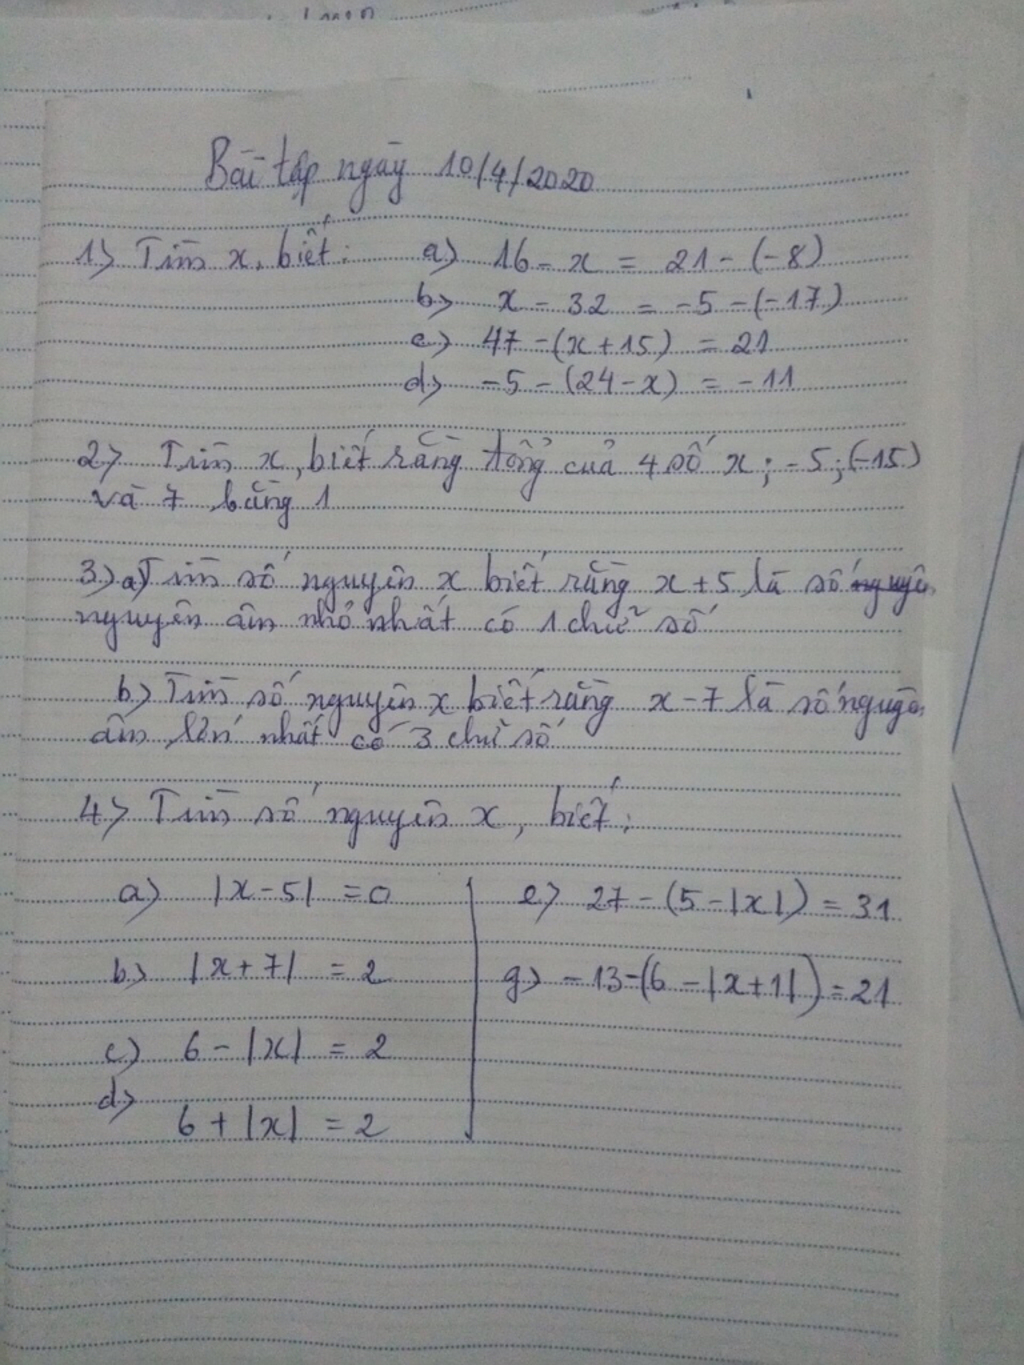 Bài tập ngày 10/4/2020
1) Tìm x, biết: a) 16 - x = 21 - (-8)
b) x - 32 = -5 - (-17)
c) 47 - (x + 15) = 21
d) -5 - (24 - x) = -11
2) Tìm x, biết rằng tổng của 4 số x; -5; (-15)
và 7 bằng 1
3) a) Tìm số nguyên x biết rằng x + 5 là số
nguyên âm nhỏ nhất có 1 chữ số
b) Tìm số nguyên x biết rằng x - 7 là số nguyên
âm lớn nhất có 3 chữ số
4) Tìm số nguyên x, biết:
a) |x - 5| = 0
b) |x + 7| = 2
c) 6 - |x| = 2
d)
6 + |x| = 2
e) 27 - (5 - |x|) = 31
g) -13 - (6 - |x + 1|) = 21